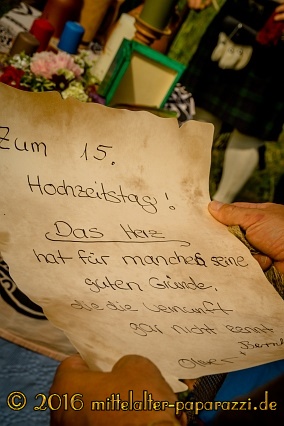 Zum 15.
Hochzeitstag!
Das Herz
hat für manches seine
guten Gründe,
die die Vernunft
gar nicht kennt
© 2016 mittelalter-paparazzi.de